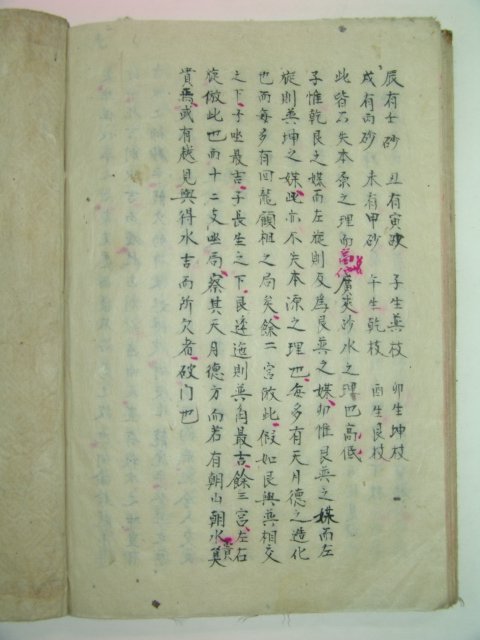 辰有壬砂 丑有寅砂 子生巽枝 卯生坤枝
戌有丙砂 未有甲砂 午生乾枝 酉生艮枝
此皆不失本原之理而高低廣狹砂水之理也高低
子惟乾艮之媒而左旋則反爲艮巽之媒卯惟艮巽之媒而左
旋則巽坤之媒此亦不失本源之理也每多有天月德之造化
也而每多有回龍顧祖之局矣餘二宮倣此假如艮與巽相交
之下子坐最吉子長生之下艮逶迤則巽角最吉餘三宮左右
旋倣此也而十二支坐局察其天月德方向若有朝山朝水莫
貴焉或有越見與得水吉而所欠者破门也
貴